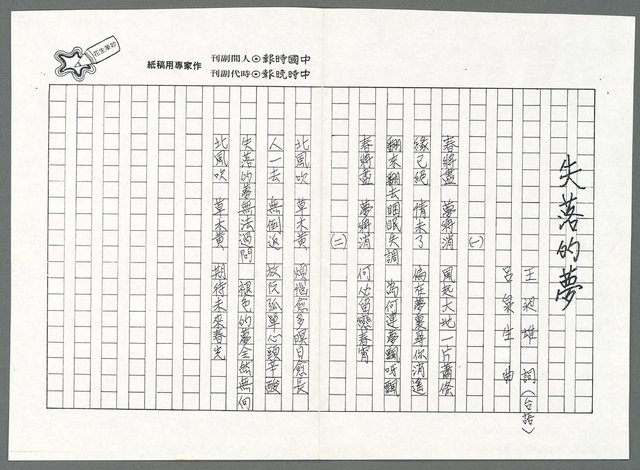 妙筆生花
中國時報⊙人間副刊
中時晚報⊙時代副刊
作家專用稿紙
失落的夢
王昶雄 詞(台語)
呂泉生 曲
(一)
春將盡 夢將消 風起大地一片蕭條
緣已絕 情未了 偏在夢裏尋你消遙
翻來翻去睏眠失調 為何連夢飄呀飄
春將盡 夢將消 何必留戀春宵
(二)
北風吹 草木黃 煩惱愈多暝日愈長
人一去 無倒返 放阮孤單心頭苦酸
失落的夢無法過問 褪色的夢全然無向
北風吹 草木黃 期待未來春光